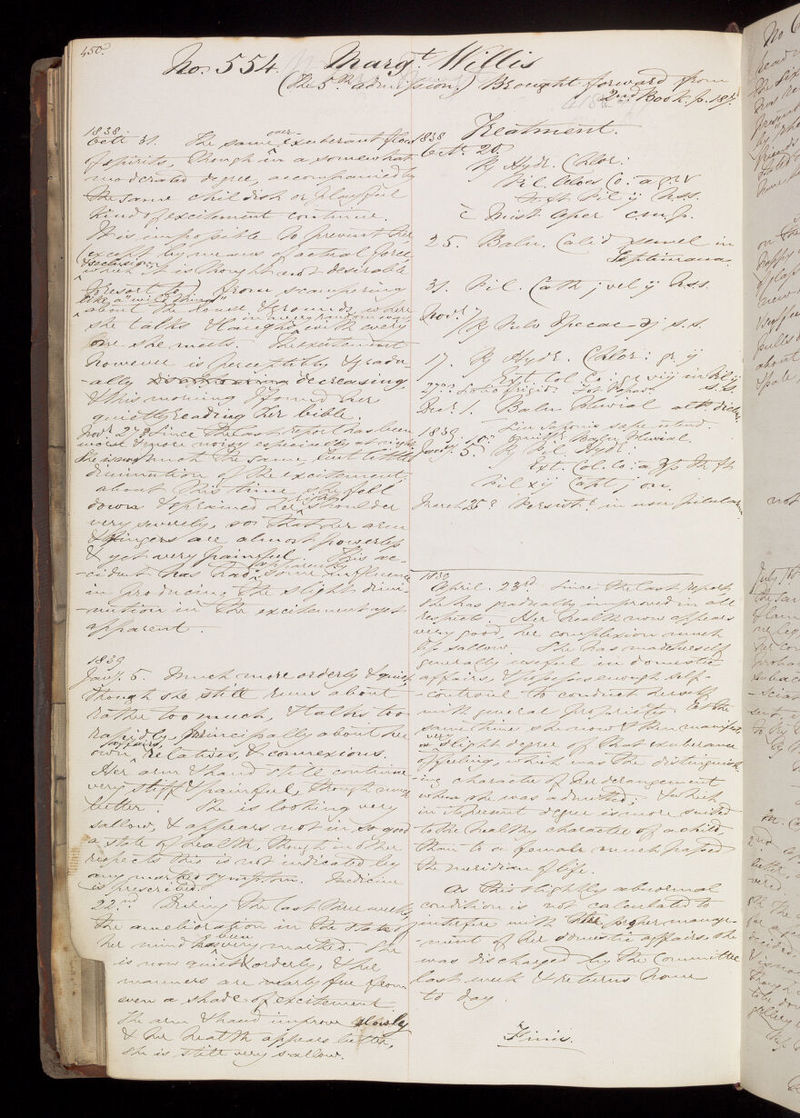 450.
No. 554. Margt. Willis
(The 5th admission.) Brought forward from
2nd Book p. 187.
1838
Octr 31. The same over-exuberant flow
of spirits, though in a somewhat
moderated degree, accompanied by
the same childish or playful
kind of excitement continue.
It is impossible to prevent her
(except by means of actual force
& seclusion, which it is thought not desirable
to resort to) from scampering
like a "wild thing"
about the house & grounds, where
in a very random way
she talks & laughs with every
one she meets. The excitement
however is perceptibly & gradu-
-ally decreasing,
& this morning I found her
quietly reading her bible.
Novr 27. Since the last report has been
worse & more noisy especially at night.
She is now much the same, but little
diminution of the excitement;
about this time she fell
down & sprained her right shoulder
very severely, so that her arm
& fingers are almost powerless
& yet very painful. This ac-
-cident has had apparently some influence
in producing the slight dimi-
-nution in the excitement yet
apparent.
1839
Jany. 5. Much more orderly & quiet,
though she still runs about
rather too much, & talks too
rapidly, principally about her
own affairs, relatives, & connexions.
Her arm & hand still continue
very stiff & painful, though
better. She is looking very
sallow, & appears not in so good
a state of health, though in other
respects this is not indicated by
any marked symptom. Medicine
is prescribed.
22nd. During the last three weeks
the amelioration in the state of
her mind has been very marked. She
is now quiet & orderly, & her
manners are nearly free from
even a shade of excitement.
The arm & hand improve slowly
& her health appears better,
she is still very sallow.
Treatment.
1838
Octr. 20.
℞ Hydr. Chlor:
Pil. Aloes Co. a
ft Pil ij h.s.s.
c Mist. Aper c.m.p.
25. Baln. Calid semel in
Septimana.
31. Pil. Cath j vel ij h.s.s.
Novr 7
℞ Pulv Ipecac ℈j s.s.
17. ℞ Hydr. Chlor: gr ij
Ext. Col Co: gr viij in Pil ij
s.s.
Decr 1. Baln Pluvial alt. dieb.
1839
Jany. 5.
℞ Pil. Hydr:
Ext. Col. Co: a ft
Pil xij Capt j on.
March 25. Persist: in usu pilular.
1839
April. 23rd. Since the last report
she has gradually improved in all
respects. Her health now appears
very good, her complexion much
less sallow. She has made herself
generally useful in domestic
affairs, & possesses enough self-
-controul to conduct herself
with general propriety. At the
same time she now & then manifests
a very slight degree of that exuberance
of feeling, which was the distinguish-
-ing character of her derangement
when she was admitted; & which
in its present degree is more suited
to the healthy character of a child,
than to a female much passed
the meridian of life.
As this slightly abnormal
condition is not calculated to
interfere with the proper manage-
-ment of her domestic affairs, she
was discharged by the Committee
last week & returns home
to day.
Finis.